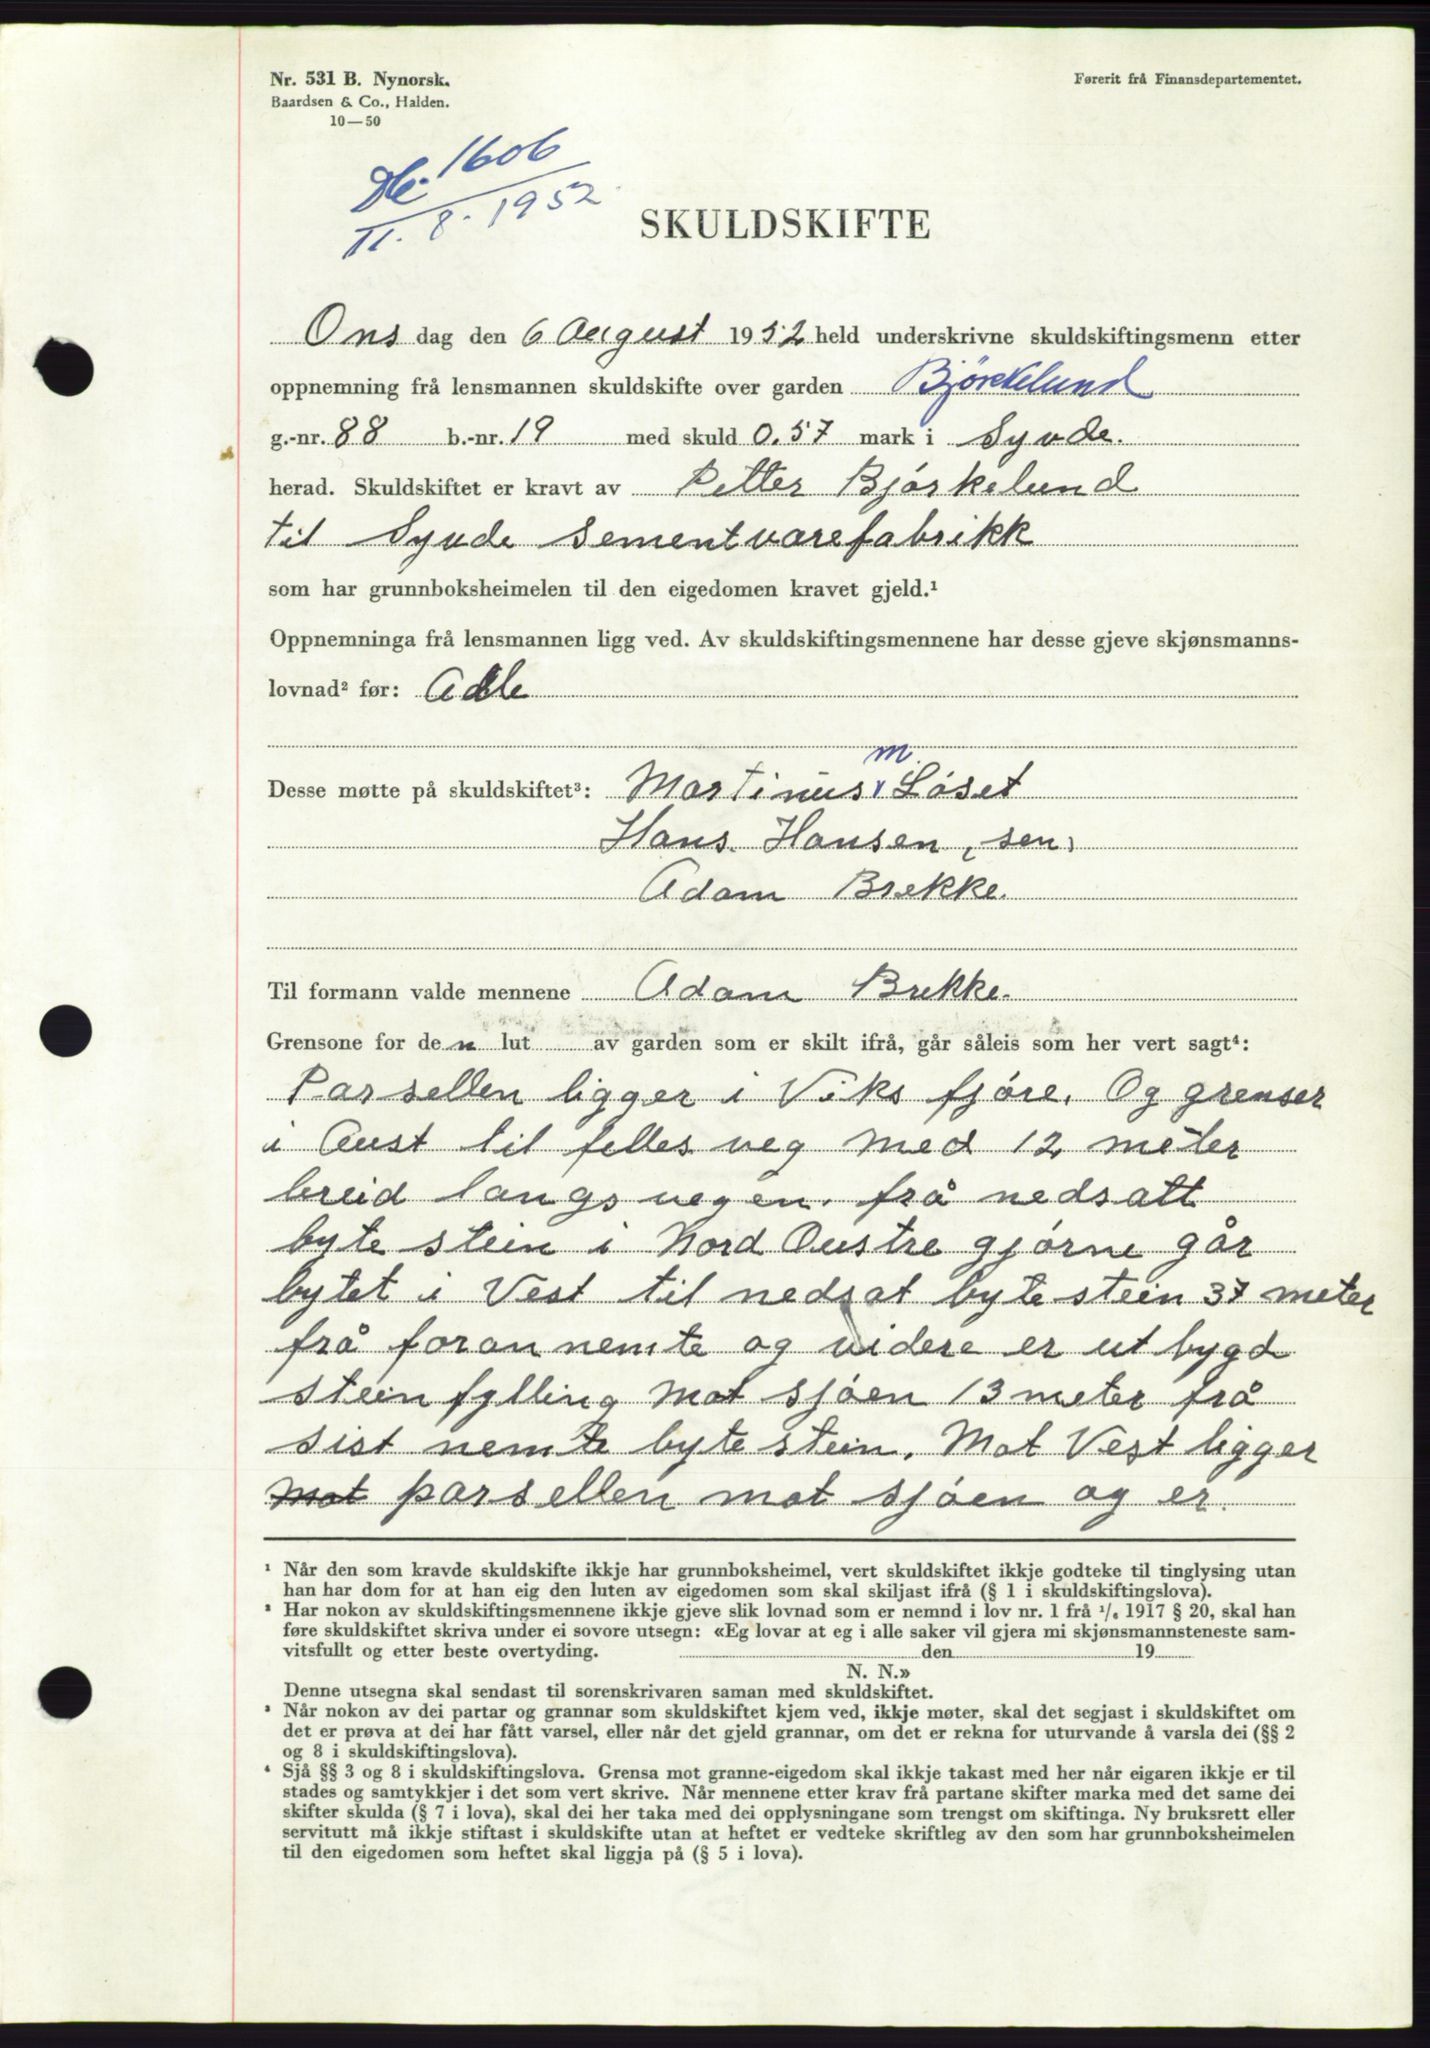 Nr. 531 B. Nynorsk.
Baardsen & Co., Halden.
10—50
Førerit frå Finansdepartementet.
Db. 1606
11. 8. 1952
SKULDSKIFTE
Ons dag den 6 August 1952 held underskrivne skuldskiftingsmenn etter
oppnemning frå lensmannen skuldskifte over garden Bjørkelund
g.-nr. 88 b.-nr. 19 med skuld 0.57 mark i Syvde.
herad. Skuldskiftet er kravt av Petter Bjórkelund
til Syvde sementvarefabrikk
som har grunnboksheimelen til den eigedomen kravet gjeld.¹
Oppnemninga frå lensmannen ligg ved. Av skuldskiftingsmennene har desse gjeve skjønsmanns-
lovnad² før: Adle
Desse møtte på skuldskiftet³: Martinus M. Lóset
Hans Hansen, sen,
Adam Brekke.
Til formann valde mennene Adam Brekke.
Grensone for den lut av garden som er skilt ifrå, går såleis som her vert sagt⁴:
Parsellen ligger i Viks fjóre. Og grenser
i Aust til felles veg med 12 meter
breid langs vegen. frå nedsatt
byte stein i Nord Austre gjórne går
bytet i Vest til nedsat byte stein 37 meter
frå foran nemte og videre er ut bygd
stein fylling mot sjóen 13 meter frå
sist nemte byte stein. Mot Vest ligger
mot parsellen mot sjóen og er.
¹ Når den som kravde skuldskifte ikkje har grunnboksheimel, vert skuldskiftet ikkje godteke til tinglysing utan
han har dom for at han eig den luten av eigedomen som skal skiljast ifrå (§ 1 i skuldskiftingslova).
² Har nokon av skuldskiftingsmennene ikkje gjeve slik lovnad som er nemnd i lov nr. 1 frå ¹/₆ 1917 § 20, skal han
føre skuldskiftet skriva under ei sovore utsegn: «Eg lovar at eg i alle saker vil gjera mi skjønsmannsteneste sam-
vitsfullt og etter beste overtyding. den 19
N. N.»
Denne utsegna skal sendast til sorenskrivaren saman med skuldskiftet.
³ Når nokon av dei partar og grannar som skuldskiftet kjem ved, ikkje møter, skal det segjast i skuldskiftet om
det er prøva at dei har fått varsel, eller når det gjeld grannar, om det er rekna for uturvande å varsla dei (§§ 2
og 8 i skuldskiftingslova).
⁴ Sjå §§ 3 og 8 i skuldskiftingslova. Grensa mot granne-eigedom skal ikkje takast med her når eigaren ikkje er til
stades og samtykkjer i det som vert skrive. Når mennene etter krav frå partane skifter marka med det same dei
skifter skulda (§ 7 i lova), skal dei her taka med dei opplysningane som trengst om skiftinga. Ny bruksrett eller
servitutt må ikkje stiftast i skuldskifte utan at heftet er vedteke skriftleg av den som har grunnboksheimelen
til den eigedomen som heftet skal liggja på (§ 5 i lova).